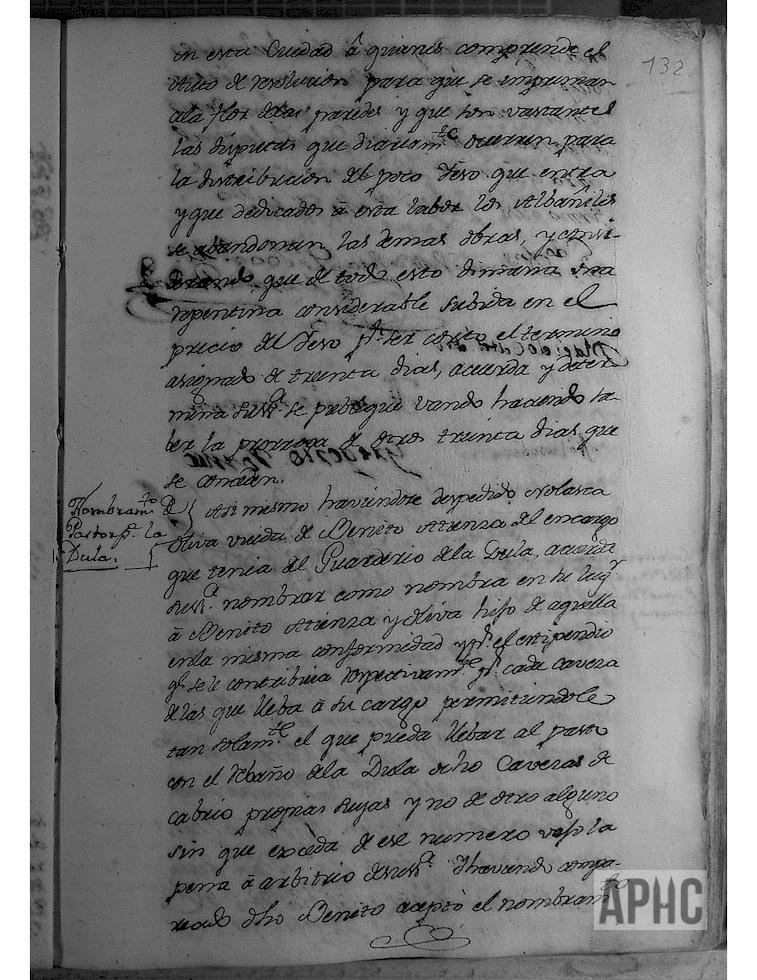 132
en esta Ciudad â quienes comprende el
Auto de resolucion para que se impriman
ala flor delas paredes y que son vastantes
las disputas que diariam.te ocurren para
la distribucion del poco Yeso que entra
y que dedicados â esta labor los Albañiles
se abandonan las demas obras, y consi-
derando que de todo esto dimana una
repentina considerable subida en el
precio del Yeso p.r ser corto el termino
asignado de treinta dias, acuerda y deter-
mina Su SS.ª se publique vando haciendo sa-
ber la prorroga de otros treinta dias que
se conceden.
Nombram.to D
Pastor p.ª la
Dula.
Asi mismo haviendose despedido Nolasca
Oliva viuda de Benito Atienza del encargo
que tenia del Guarderio dela Dula, acuerda
Su SS.ª nombrar como nombra en su lug.r
â Benito Atienza y Oliva hijo de aquella
enla misma conformidad y p.r el estipendio
q.e se le contribuia respectivam.te p.r cada cavera
delas que lleba â su cargo permitiendole
tan solam.te el que pueda llebar al pasto
con el rebaño dela Dula ocho Caveras de
cabrio propias suyas y no de otro alguno
sin que exceda de ese numero vajo la
pena â arbitrio de su SS.ª Y haviendo compa-
recido dho Benito aceptò el nombram.to
APHC